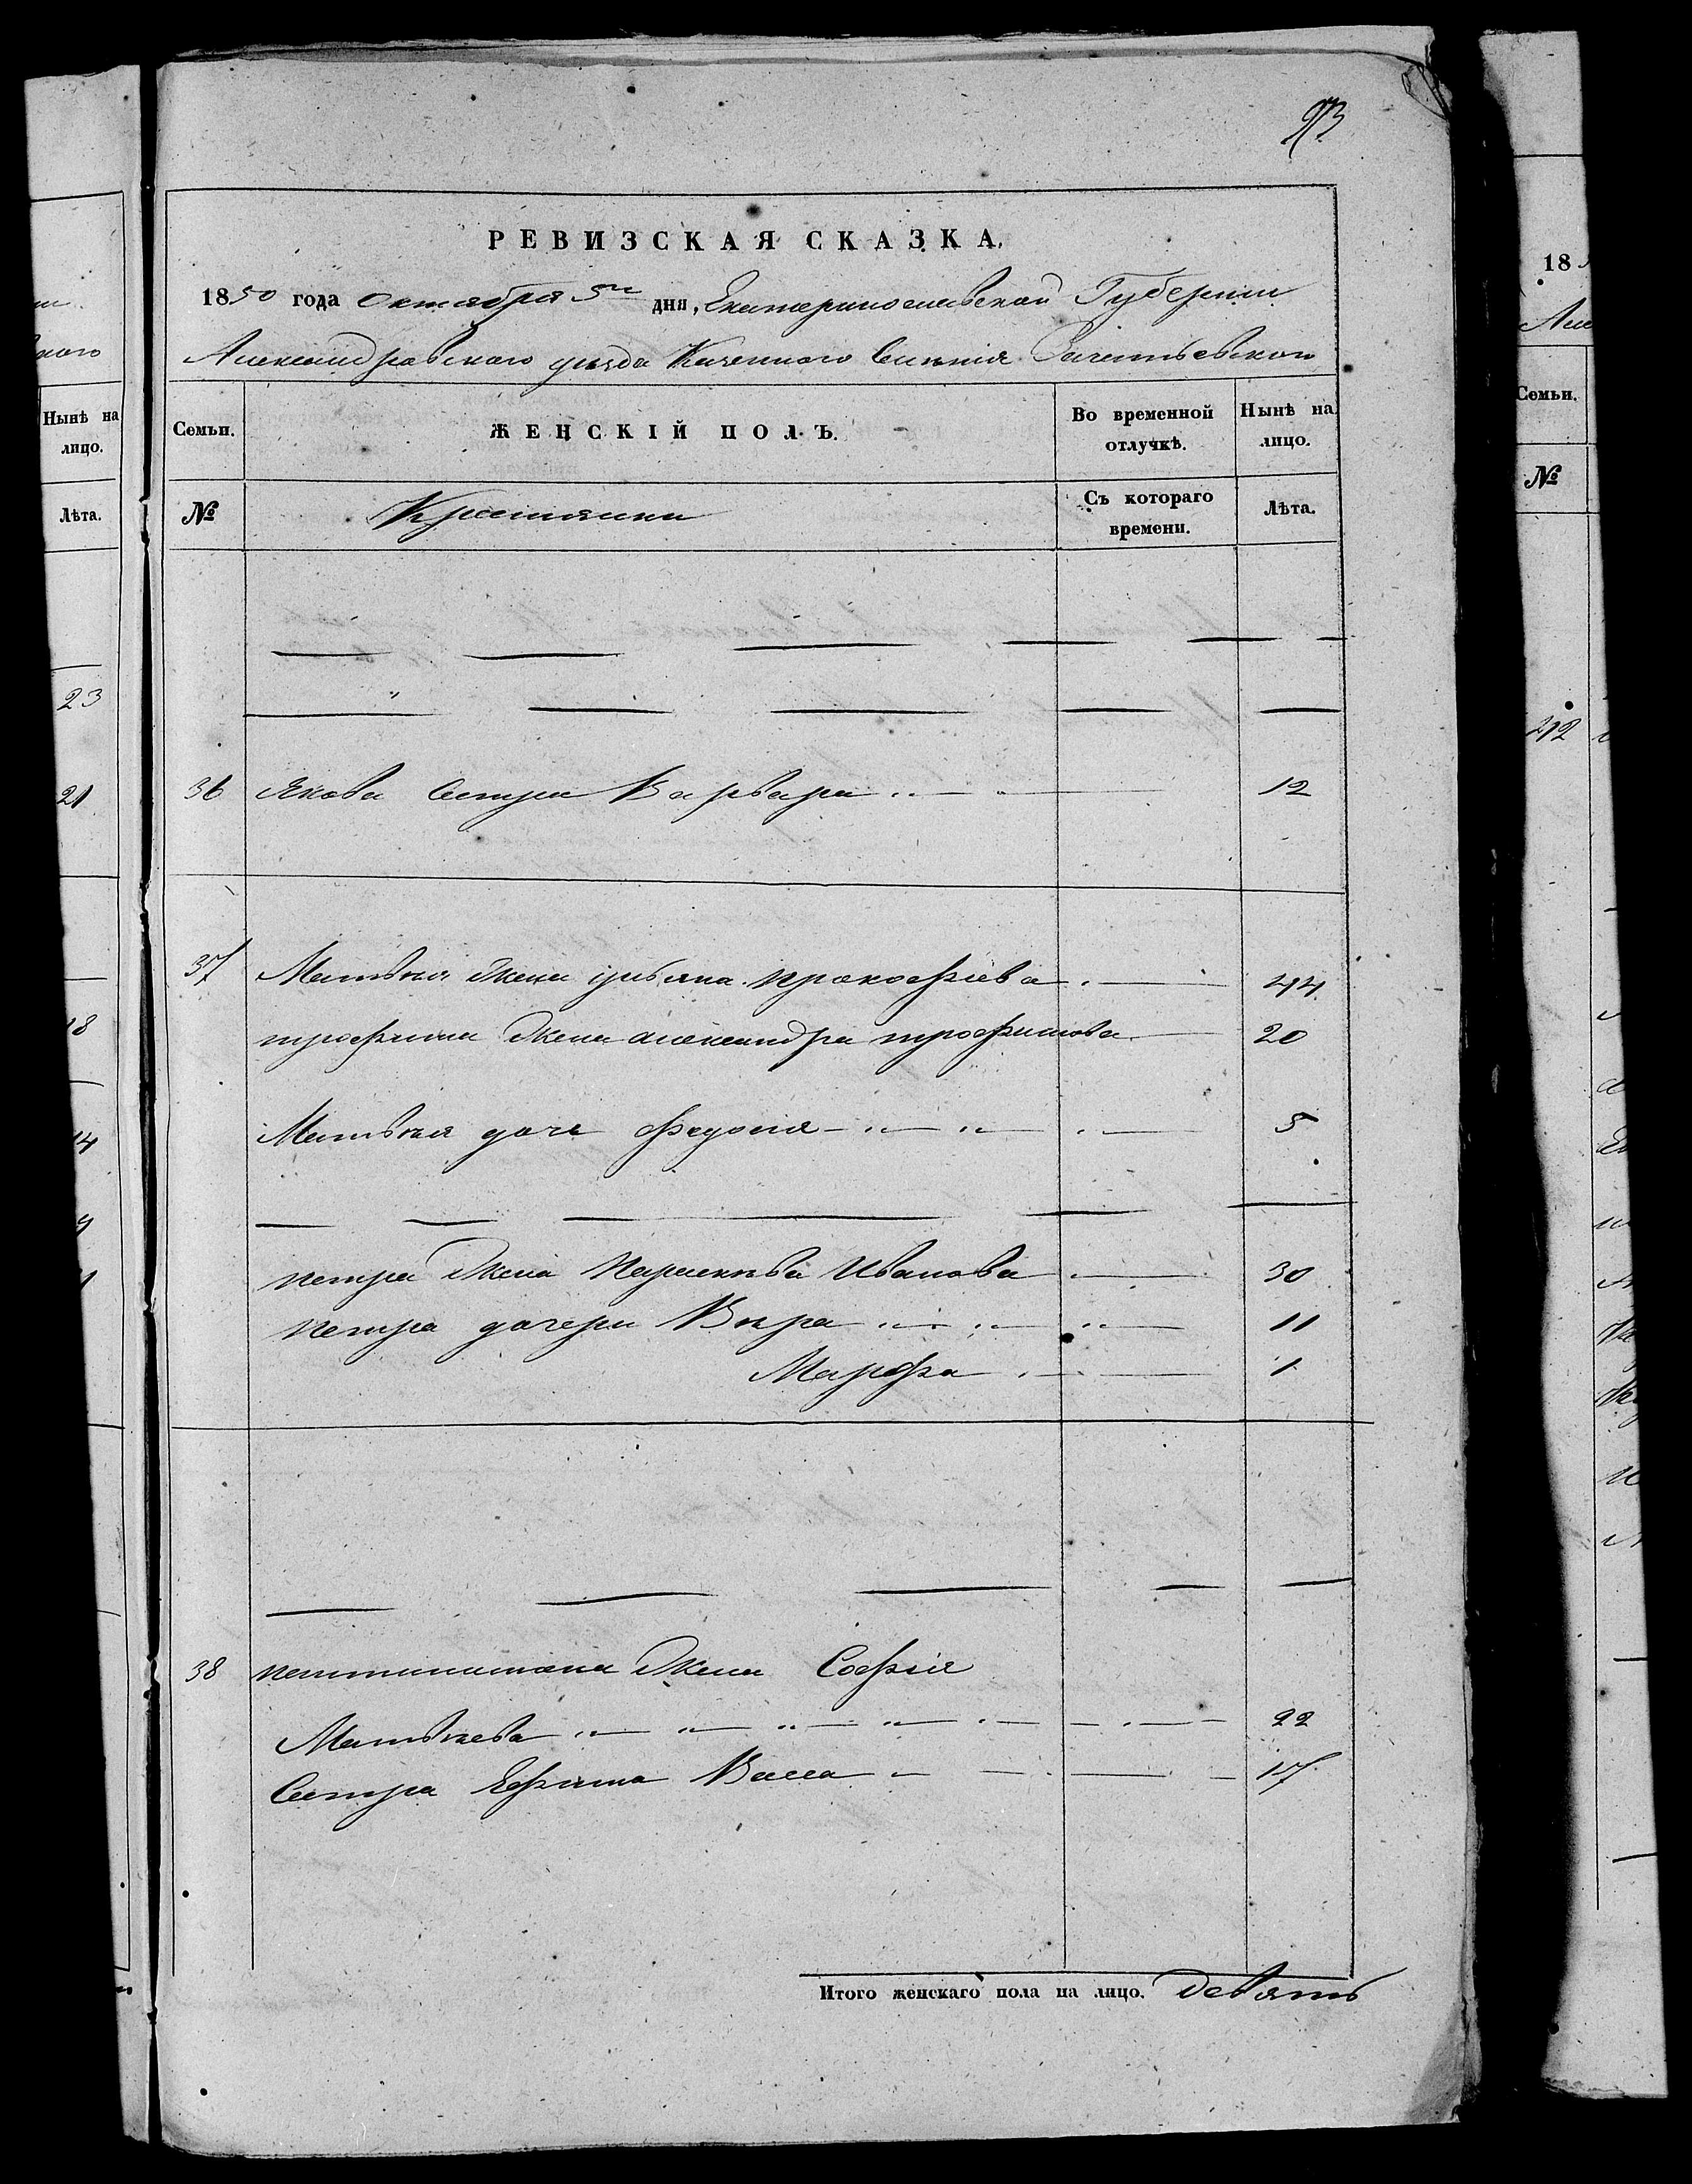 93
РЕВИЗСКАЯ СКАЗКА.
1850 года Октября 5го дня, Екатеринославской Губернии
Александровского уезда Казенного Селенія
Семьи. ЖЕНСКІЙ ПОЛЪ. Во временной отлучкѣ. Нынѣ на лицо.
№ Крестьянки Съ котораго времени. Лѣта.
36 Якова Сестра Варвара 12
37 Матвѣя Жена Ульяна Прокофіева 44
трофима Жена александра трофимова 20
Матвѣя дочь федосія 5
петра Жена Парасковѣа Иванова 30
петра дочери Вѣра 11
Марфа 1
38 Жена Софія
Матвѣева 22
Сестра Ефима Васса 17
Итого женскаго пола на лицо. девять
Нынѣ на лицо.
Лѣта.
23
21
18
14
9
18
Семьи.
№
212